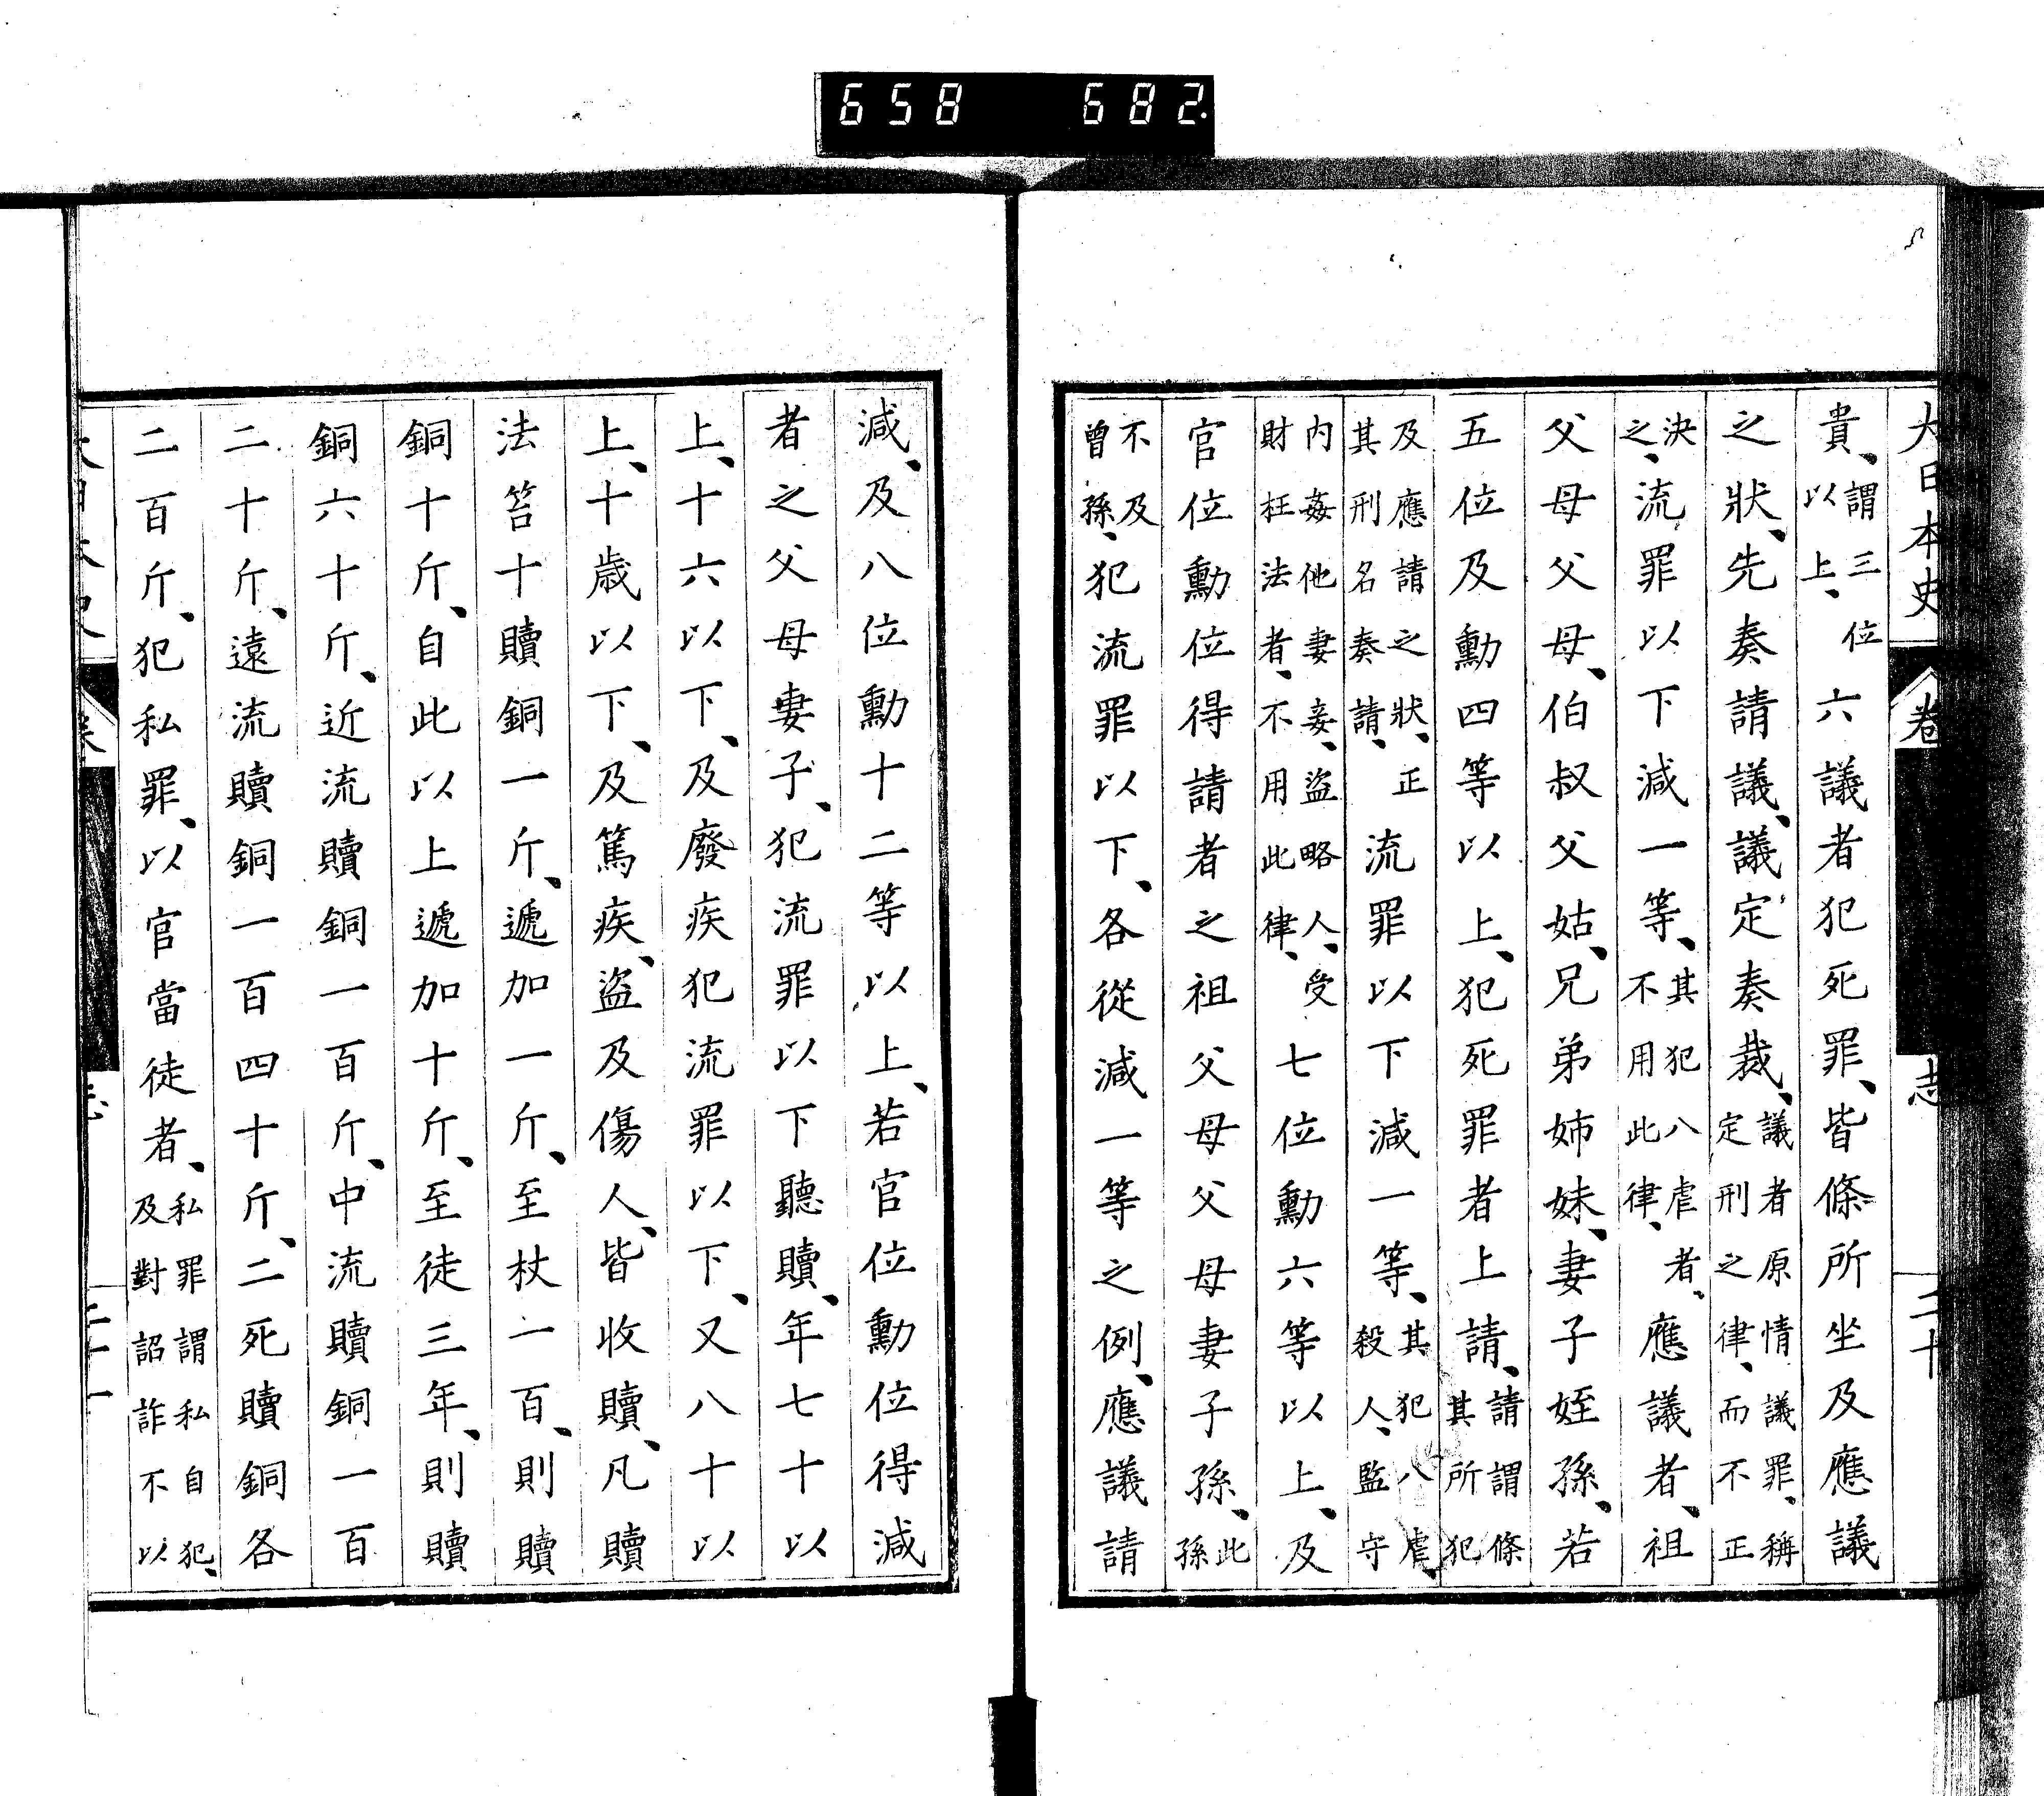 658 682.
大日本史 卷 志 二十
貴、謂三位以上、六議者犯死罪、皆條所坐及應議
之狀、先奏請議、議定奏裁、議者原情議罪、稱定刑之律、而不正
決之、流罪以下減一等、其犯八虐者、不用此律、應議者、祖
父母父母、伯叔父姑、兄弟姉妹、妻子姪孫、若
五位及勳四等以上、犯死罪者上請、請謂條其所犯
及應請之狀、正其刑名奏請、流罪以下減一等、其犯八虐、殺人、監守
内姦他妻妾、盜略人、受財枉法者、不用此律、七位勳六等以上、及
官位勳位得請者之祖父母父母妻子孫、此孫
不及曾孫、犯流罪以下、各從減一等之例、應議請
減、及八位勳十二等以上、若官位勳位得減
者之父母妻子、犯流罪以下聽贖、年七十以
上、十六以下、及廢疾犯流罪以下、又八十以
上、十歲以下、及篤疾、盜及傷人、皆收贖、凡贖
法笞十贖銅一斤、遞加一斤、至杖一百、則贖
銅十斤、自此以上遞加十斤、至徒三年、則贖
銅六十斤、近流贖銅一百斤、中流贖銅一百
二十斤、遠流贖銅一百四十斤、二死贖銅各
二百斤、犯私罪、以官當徒者、私罪謂私自犯、及對詔詐不以